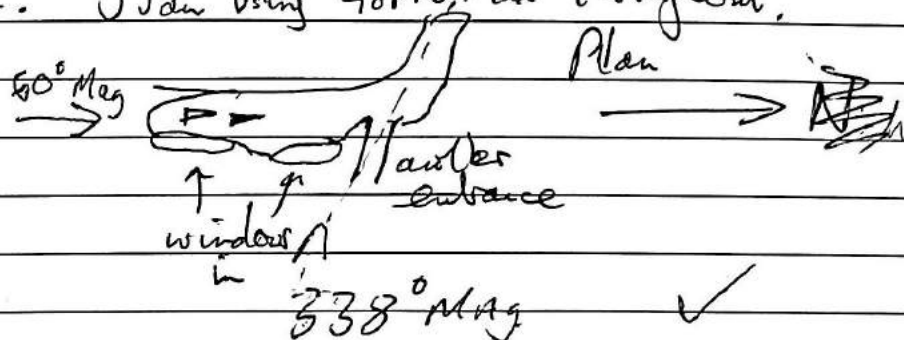 using
60° Mag
Plan
another
entrance
windows
in
338° Mag